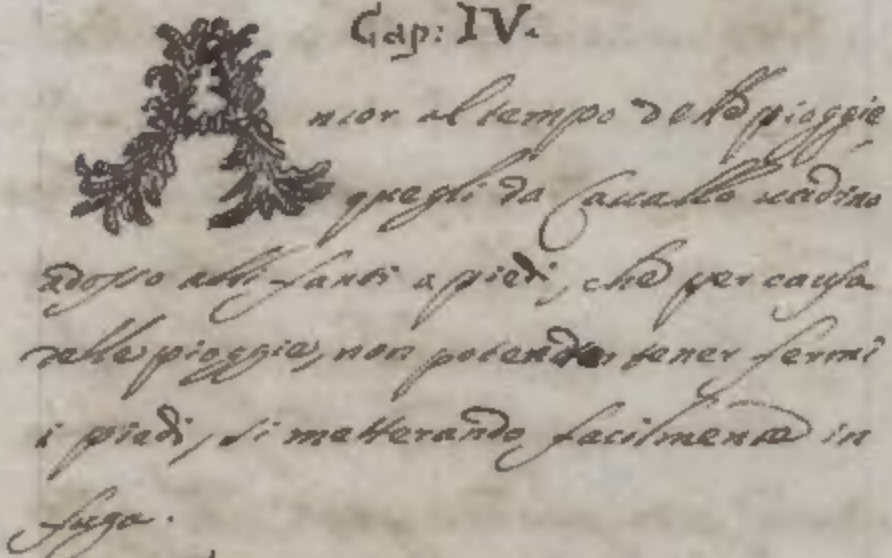 Cap: IV.
Ancor al tempo delle pioggie
quegli da Cauallo uadino
adosso alli fanti a piedi, che per causa
delle pioggie, non potendo tener fermi
i piedi, si metterando facilmente in
fuga.